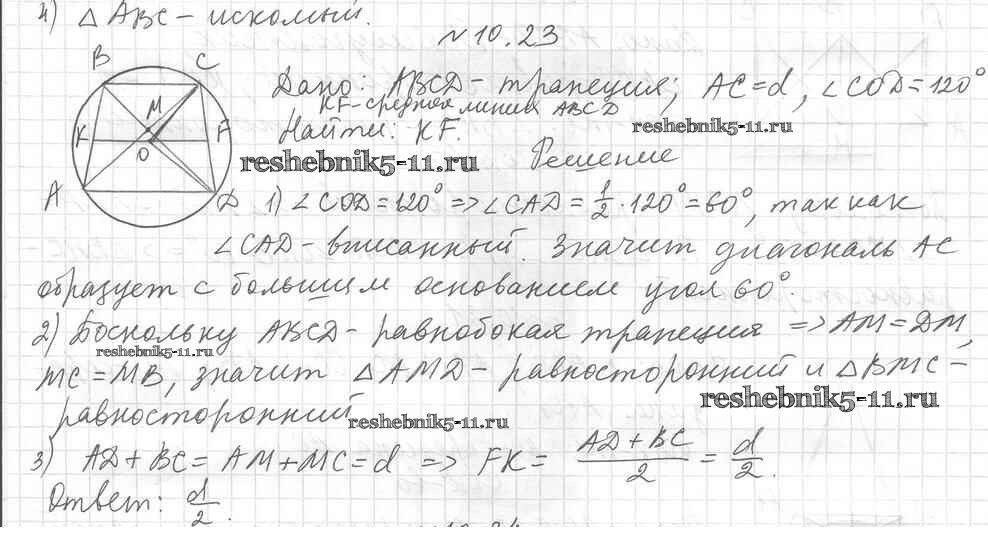 4) △ ABC – искомый.
№ 10.23
B C
Дано: ABCD – трапеция; AC = d, ∠COD = 120°
KF – средняя линия ABCD
M
K F
Найти: KF.
reshebnik5-11.ru
O
reshebnik5-11.ru
Решение
A D
1) ∠COD = 120° => ∠CAD = 1/2 · 120° = 60°, так как
∠CAD – вписанный. Значит диагональ AC
образует с большим основанием угол 60°.
2) Поскольку ABCD – равнобокая трапеция => AM = DM,
reshebnik5-11.ru
MC = MB, значит △ AMD – равносторонний и △ BMC –
reshebnik5-11.ru
равносторонний
reshebnik5-11.ru
3) AD + BC = AM + MC = d => FK = (AD + BC)/2 = d/2.
Ответ: d/2.